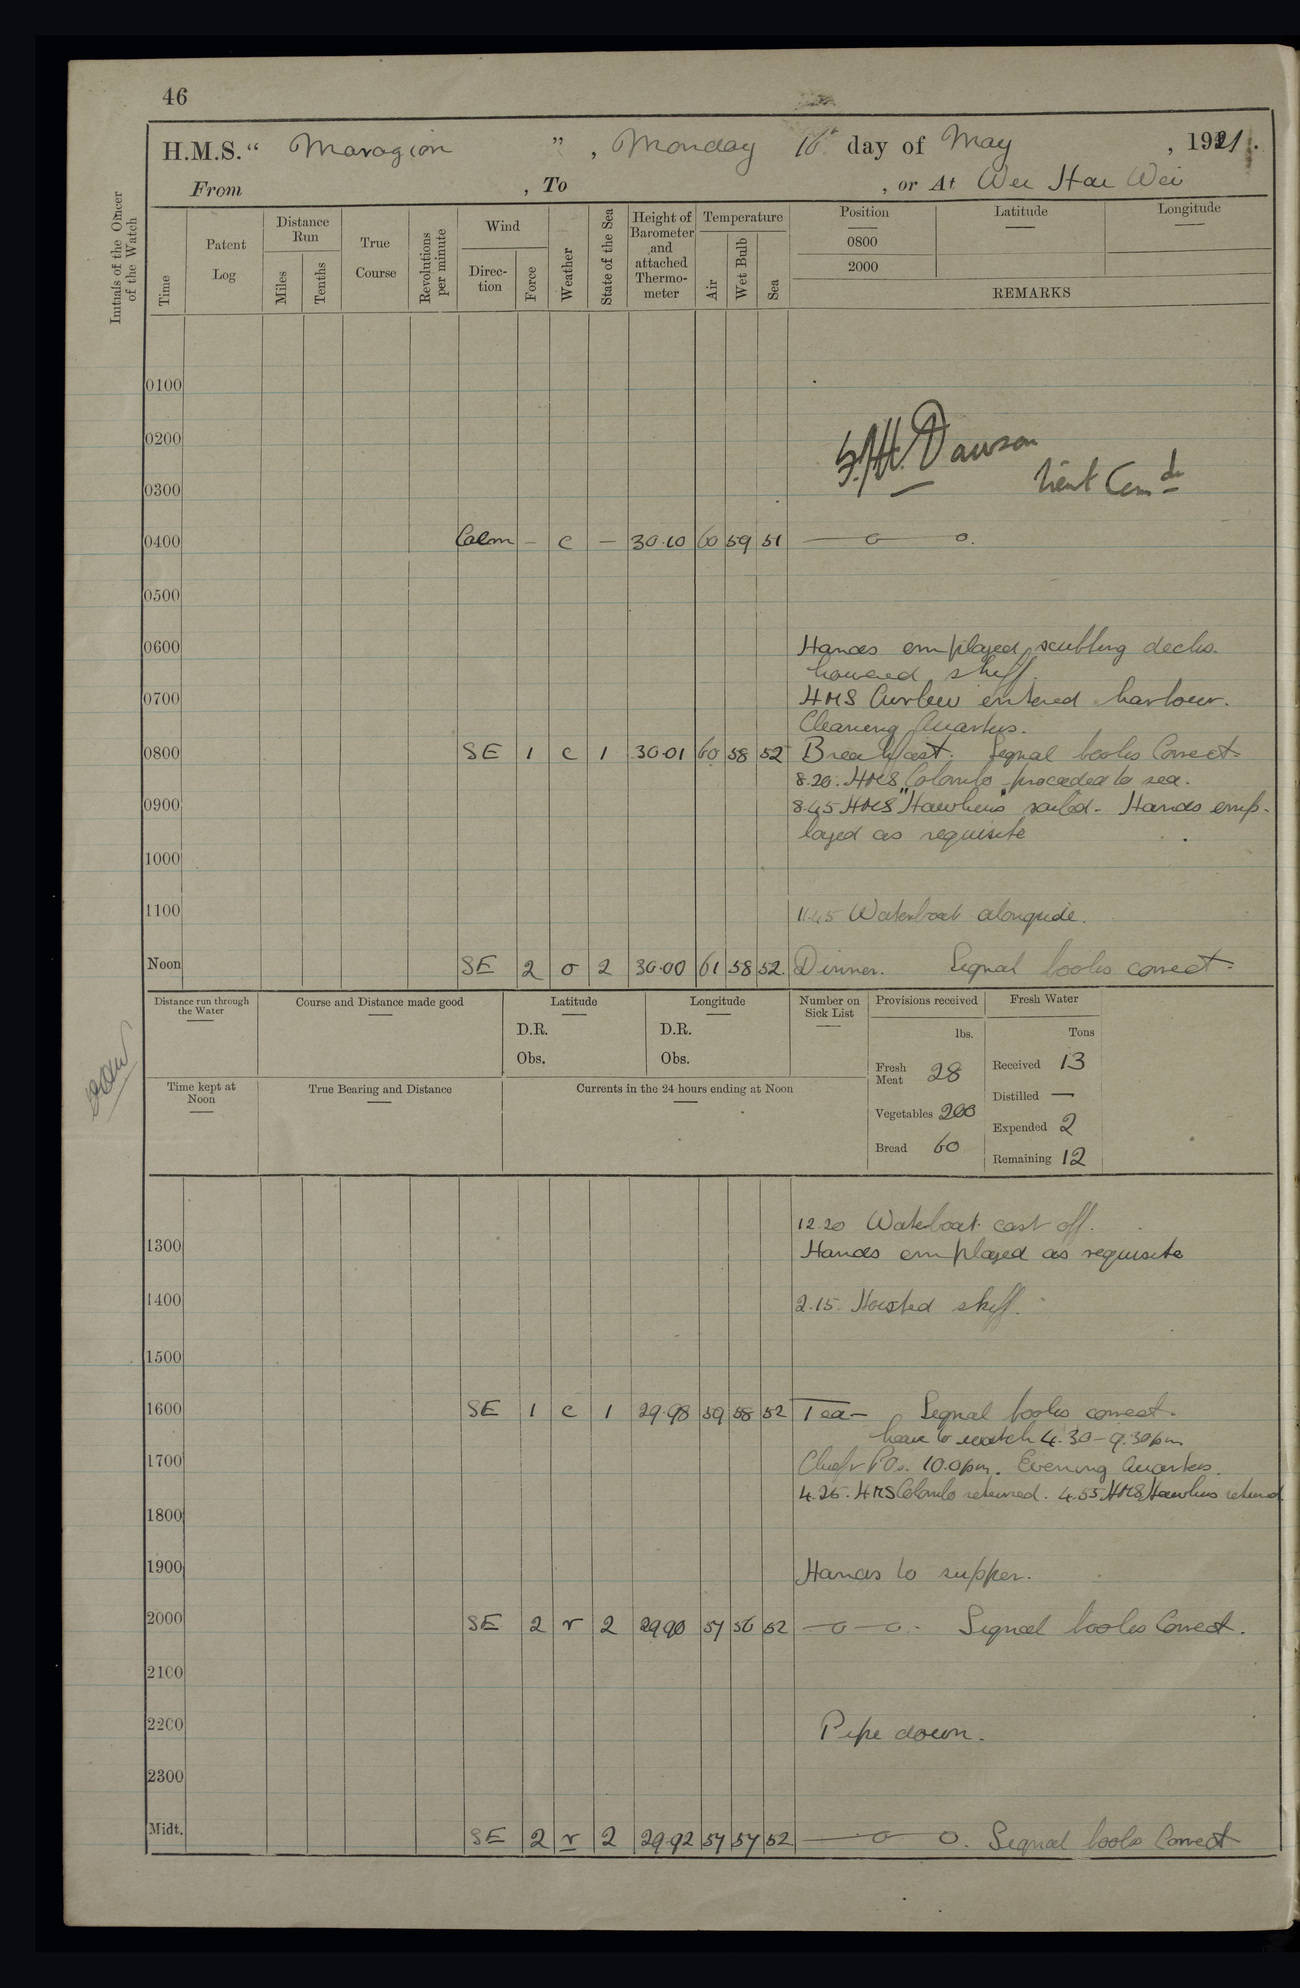 46
H.M.S. “ Marazion ” , Monday 16th day of May , 1921.
From , To , or At Wei Hai Wei
Initials of the Officer of the Watch
Time
Patent Log
Distance Run
Miles
Tenths
True Course
Revolutions per minute
Wind
Direc- tion
Force
Weather
State of the Sea
Height of Barometer and attached Thermo- meter
Temperature
Air
Wet Bulb
Sea
Position
Latitude
Longitude
0800
2000
REMARKS
0100
0200
Dawson
Lieut Comdr
0300
0400 Calm – c – 30.10 60 59 51 —o—o.
0500
0600 Hands employed scubbing decks.
Lowered skiff.
0700 HMS Curlew entered harbour.
Cleaning Quarters.
0800 SE 1 c 1 30.01 60 58 52 Breakfast. Signal books Correct.
8.20. HMS Colombo proceeded to sea.
0900 8.45 HMS "Hawkins" sailed. Hands emp-
loyed as requisite
1000
1100 11.45 Waterboat alongside.
Noon SE 2 o 2 30.00 61 58 52. Dinner. Signal books correct.
Distance run through the Water
Course and Distance made good
Latitude
D.R.
Obs.
Longitude
D.R.
Obs.
Number on Sick List
Provisions received
lbs.
Fresh Meat 28
Vegetables 200
Bread 60
Fresh Water
Tons
Received 13
Distilled —
Expended 2
Remaining 12
Time kept at Noon
True Bearing and Distance
Currents in the 24 hours ending at Noon
12.20 Waterboat cast off.
1300 Hands employed as requisite
1400 2.15. Hoisted skiff.
1500
1600 SE 1 c 1 29.98 59 58 52 Tea— Signal books correct.
Leave to watch 4.30 – 9.30pm
1700 Chief & POs. 10.0pm. Evening Quarters.
4.25. HMS Colombo returned. 4.55 HMS Hawkins returned
1800
1900 Hands to supper.
2000 SE 2 r 2 29.90 57 56 52 —o—o. Signal books Correct.
2100
2200 Pipe down.
2300
Midt. SE 2 r 2 29.92 57 57 52 —o—o. Signal books Correct